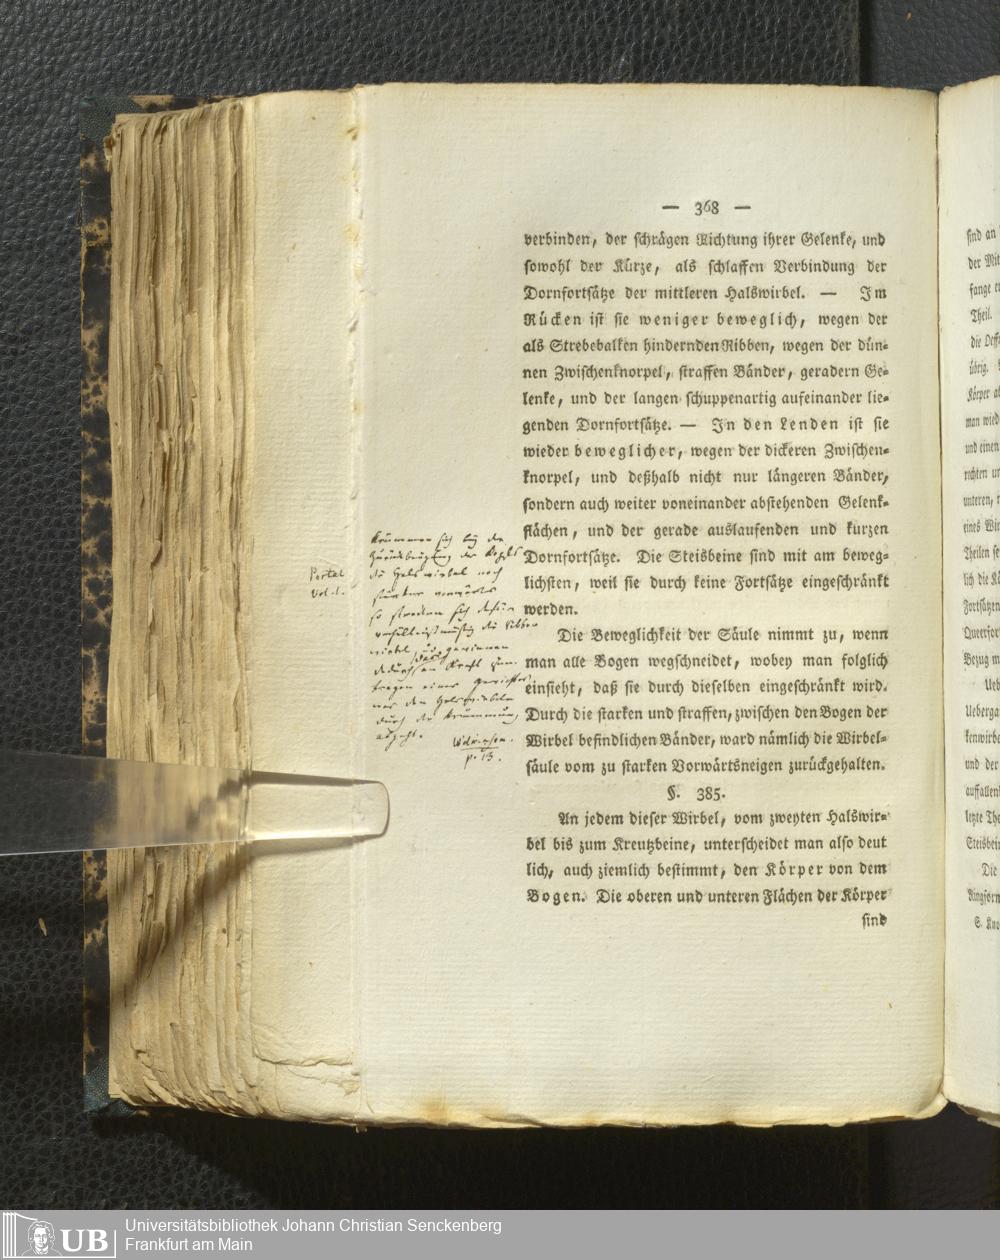 — 368 —
verbinden, der schrägen Richtung ihrer Gelenke, und
sowohl der Kürze, als schlaffen Verbindung der
Dornfortsätze der mittleren Halswirbel. — Im
Rücken ist sie weniger beweglich, wegen der
als Strebebalken hindernden Ribben, wegen der dün=
nen Zwischenknorpel, straffen Bänder, geradern Ge=
lenke, und der langen schuppenartig aufeinander lie=
genden Dornfortsätze. — In den Lenden ist sie
wieder beweglicher, wegen der dickeren Zwischen=
knorpel, und deßhalb nicht nur längeren Bänder,
sondern auch weiter voneinander abstehenden Gelenk=
flächen, und der gerade auslaufenden und kurzen
Dornfortsätze. Die Steisbeine sind mit am beweg=
lichsten, weil sie durch keine Fortsätze eingeschränkt
werden.
Die Beweglichkeit der Säule nimmt zu, wenn
man alle Bogen wegschneidet, wobey man folglich
einsieht, daß sie durch dieselben eingeschränkt wird.
Durch die starken und straffen, zwischen den Bogen der
Wirbel befindlichen Bänder, ward nämlich die Wirbel=
säule vom zu starken Vorwärtsneigen zurückgehalten.
§. 385.
An jedem dieser Wirbel, vom zweyten Halswir=
bel bis zum Kreutzbeine, unterscheidet man also deut
lich, auch ziemlich bestimmt, den Körper von dem
Bogen. Die oberen und unteren Flächen der Körper
sind
Portal
vol. 1.
Krümmen sich bey der
Zurückbeugung des Kopfes
die Halswirbel noch
stärker vorwärts
so strecken sich dafür
verhältnißmäßig die
wirbel, gewinnen
dadurch an Kraft zum
tragen eines Gewichtes
was den Halswirbeln
durch die Krümmung
abgeht.
p. 13.
sind an
der Mit
fange
Theil.
die Oeff
übrig.
Körper
man wied
und einen
rechten
unteren,
eines Wir
Theilen
lich die
Fortsätzen
Querfort
Bezug
Ueb
Ueberga
kenwirb
und der
auffallen
letzte The
Steisbei
Die
Ringförm
S. Kno
Universitätsbibliothek Johann Christian Senckenberg
Frankfurt am Main
UB